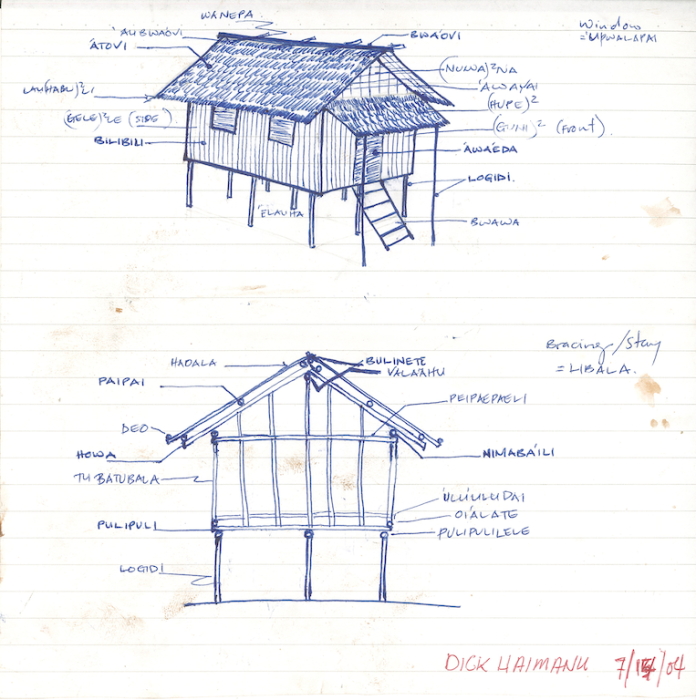 WANEPA
'AUBWAOVI
ÁTOVI
BWAÓVI
Window
='UBWALAPAI
(NUWA)²NA
'AWAYAI
(HUPE)²
(GELE)²LE (SIDE).
(FRONT).
BILIBILI
ÁWAÉDA
LOGIDI.
'ELAUHA
BWAWA
HADALA
BULINETE
VALAÁHU
Bracing/Stay
= LIBALA.
PAIPAI
PEIPAEPAELI
DEO
HOWA
NIMABAÍLI
TUBATUBALA
ÚLUÚLUDAI
OIÁLATE
PULIPULI
PULIPULILELE
LOGIDI
DICK HAIMANU